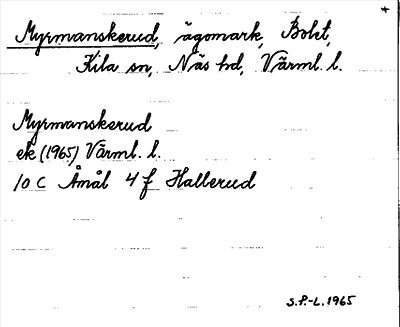 Myrmanskerud, ägomark, Bolet,
Kila sn, Näs hd, Värml. l.
Myrmanskerud
ek (1965) Värml. l.
10 C Åmål 4 f Hallerud
S.P.-L. 1965